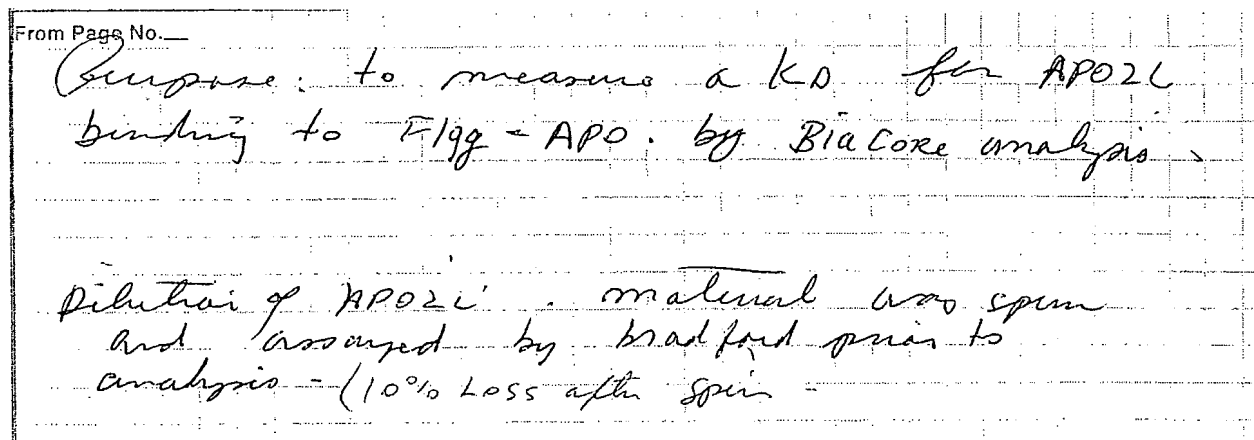 From Page No.
Purpose: to measure a KD for APO2L
binding to Flgg - APO. by BiaCore analysis.
Dilution of APO2L. material was spun
and assayed by bradford prior to
analysis - (10% Loss after spin -